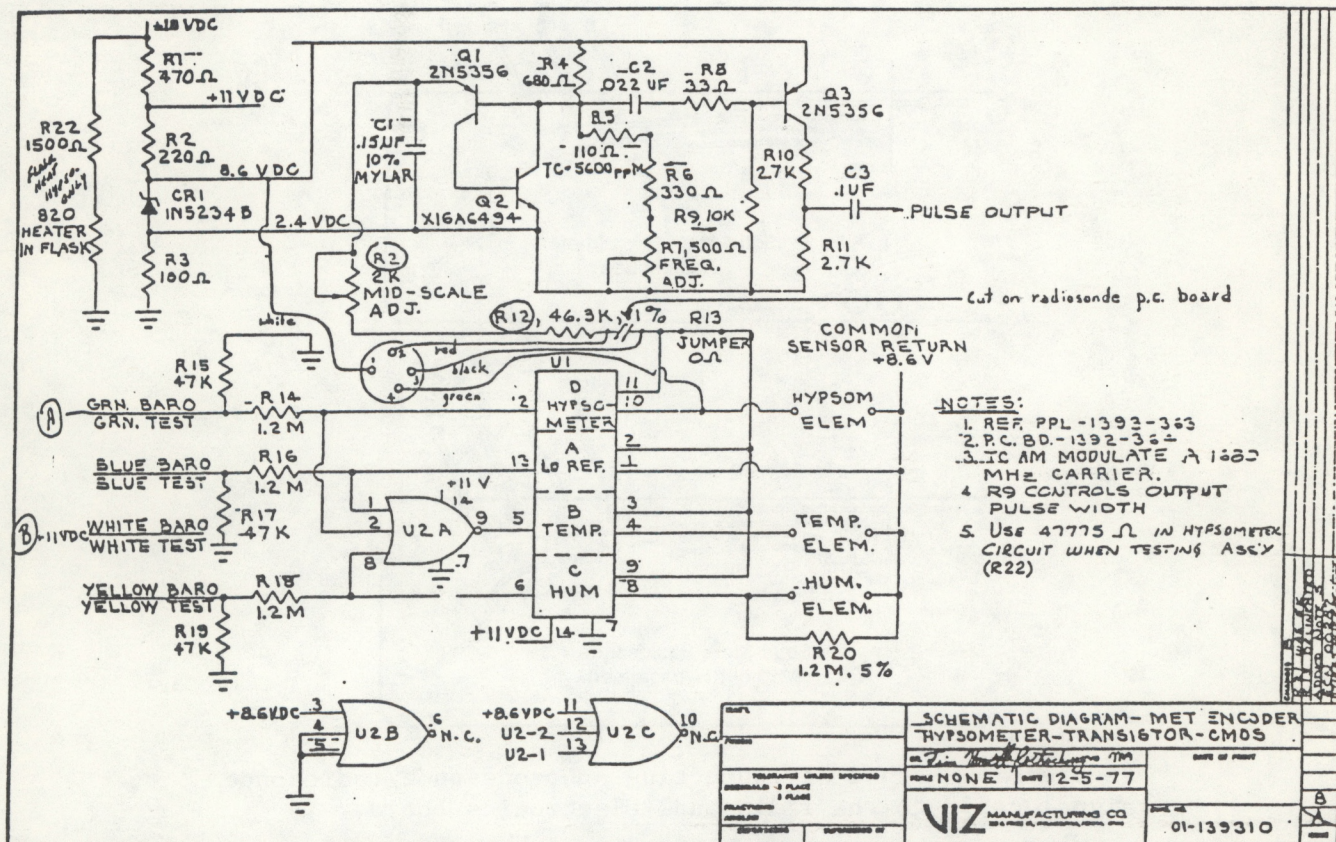 +18 VDC
R1
470Ω
+11 VDC
R22
1500Ω
R2
220Ω
8.6 VDC
820
HEATER
IN FLASK
CR1
1N5234B
2.4 VDC
R3
100Ω
Q1
2N5356
C1
.15UF
10%
MYLAR
Q2
X16A6494
R4
680Ω
C2
.022 UF
R8
33Ω
Q3
2N5356
R5
110Ω
TC-5600 ppM
R6
330Ω
R9, 10K
R7, 500Ω
FREQ.
ADJ.
R10
27K
C3
.1UF
PULSE OUTPUT
R11
2.7K
R2
2K
MID-SCALE
ADJ.
R12, 46.3K, 1%
R13
JUMPER
0Ω
Cut on radiosonde p.c. board
COMMON
SENSOR RETURN
+8.6V
white
red
black
green
1
2
3
4
R15
47K
A
GRN. BARO
GRN. TEST
R14
1.2 M
BLUE BARO
BLUE TEST
R16
1.2 M
R17
47K
B
+11VDC
WHITE BARO
WHITE TEST
YELLOW BARO
YELLOW TEST
R18
1.2 M
R19
47K
+11 V
14
1
2
8
U2A
9
7
U1
12
D
HYPSO
METER
11
10
13
A
LO REF.
2
1
5
B
TEMP.
3
4
6
C
HUM
9
8
+11VDC
14
7
HYPSOM
ELEM
TEMP.
ELEM.
HUM.
ELEM.
R20
1.2 M, 5%
NOTES:
1. REF. PPL-1393-363
2. P.C. BD.-1392-36
3. IC AM MODULATE A 1680
MHZ CARRIER.
4 R9 CONTROLS OUTPUT
PULSE WIDTH
5. USE 47775 Ω IN HYPSOMETER
CIRCUIT WHEN TESTING ASS'Y
(R22)
+8.6VDC
3
4
5
U2B
6
N.C.
+8.6VDC
U2-2
U2-1
11
12
13
U2C
10
N.C.
SCHEMATIC DIAGRAM- MET ENCODER
HYPSOMETER-TRANSISTOR-CMOS
DATE OF PRINT
NONE
12-5-77
TOLERANCE UNLESS SPECIFIED
VIZ MANUFACTURING CO.
01-139310
B
A